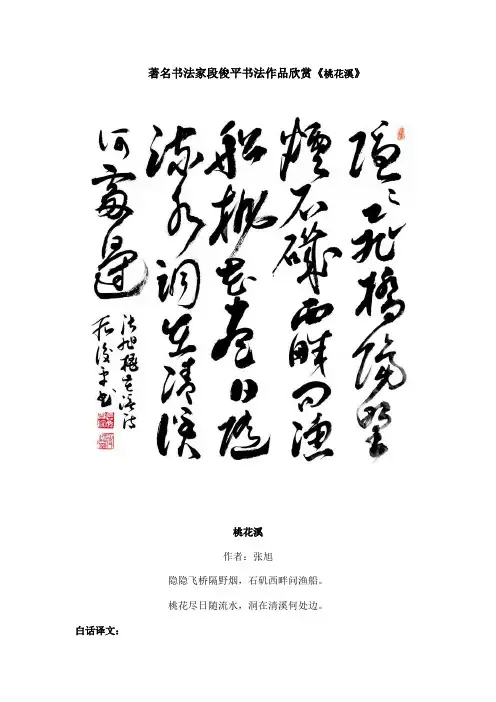 著名书法家段俊平书法作品欣赏《桃花溪》
隐々飛橋隔埜
煙石磯西畔问渔
船桃花尽日随
流水洞在清溪
何處邊
张旭桃花溪诗
段俊平书
桃花溪
作者：张旭
隐隐飞桥隔野烟，石矶西畔问渔船。
桃花尽日随流水，洞在清溪何处边。
白话译文：